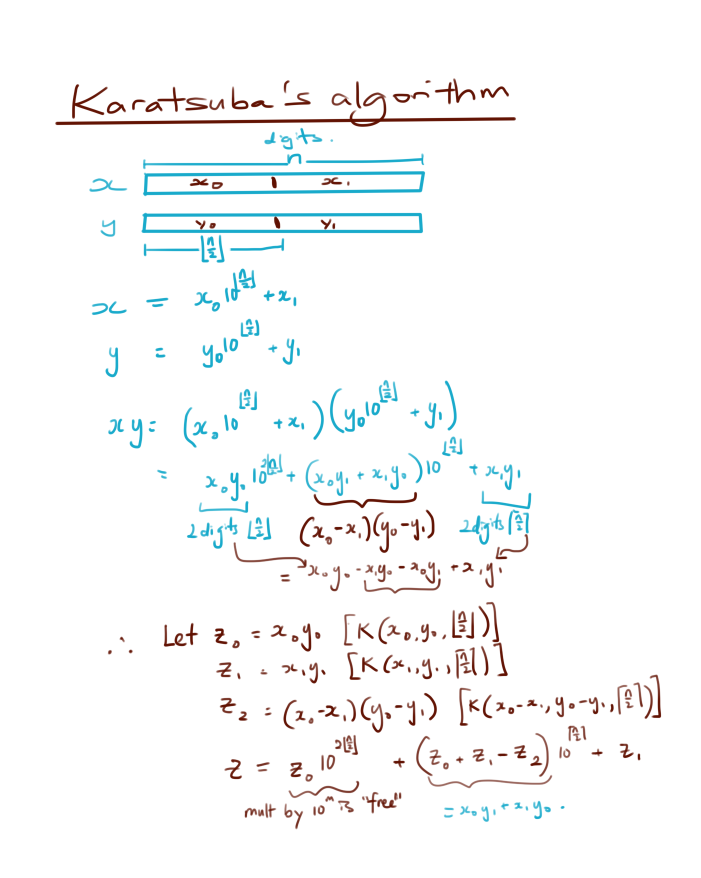 Karatsuba's algorithm
digits.
n
x x₀ x₁
y y₀ y₁
⌊n/2⌋
x = x₀10^⌊n/2⌋ + x₁
y = y₀10^⌊n/2⌋ + y₁
xy = (x₀10^⌊n/2⌋ + x₁)(y₀10^⌊n/2⌋ + y₁)
= x₀y₀10^2⌊n/2⌋ + (x₀y₁ + x₁y₀)10^⌊n/2⌋ + x₁y₁
2 digits ⌊n/2⌋ (x₀-x₁)(y₀-y₁) 2 digits ⌈n/2⌉
= x₀y₀ - x₁y₀ - x₀y₁ + x₁y₁
∴ Let z₀ = x₀y₀ [K(x₀, y₀, ⌊n/2⌋)]
z₁ = x₁y₁ [K(x₁, y₁, ⌈n/2⌉)]
z₂ = (x₀-x₁)(y₀-y₁) [K(x₀-x₁, y₀-y₁, ⌈n/2⌉)]
z = z₀10^2⌊n/2⌋ + (z₀ + z₁ - z₂)10^⌈n/2⌉ + z₁
mult by 10^m is "free" = x₀y₁ + x₁y₀.